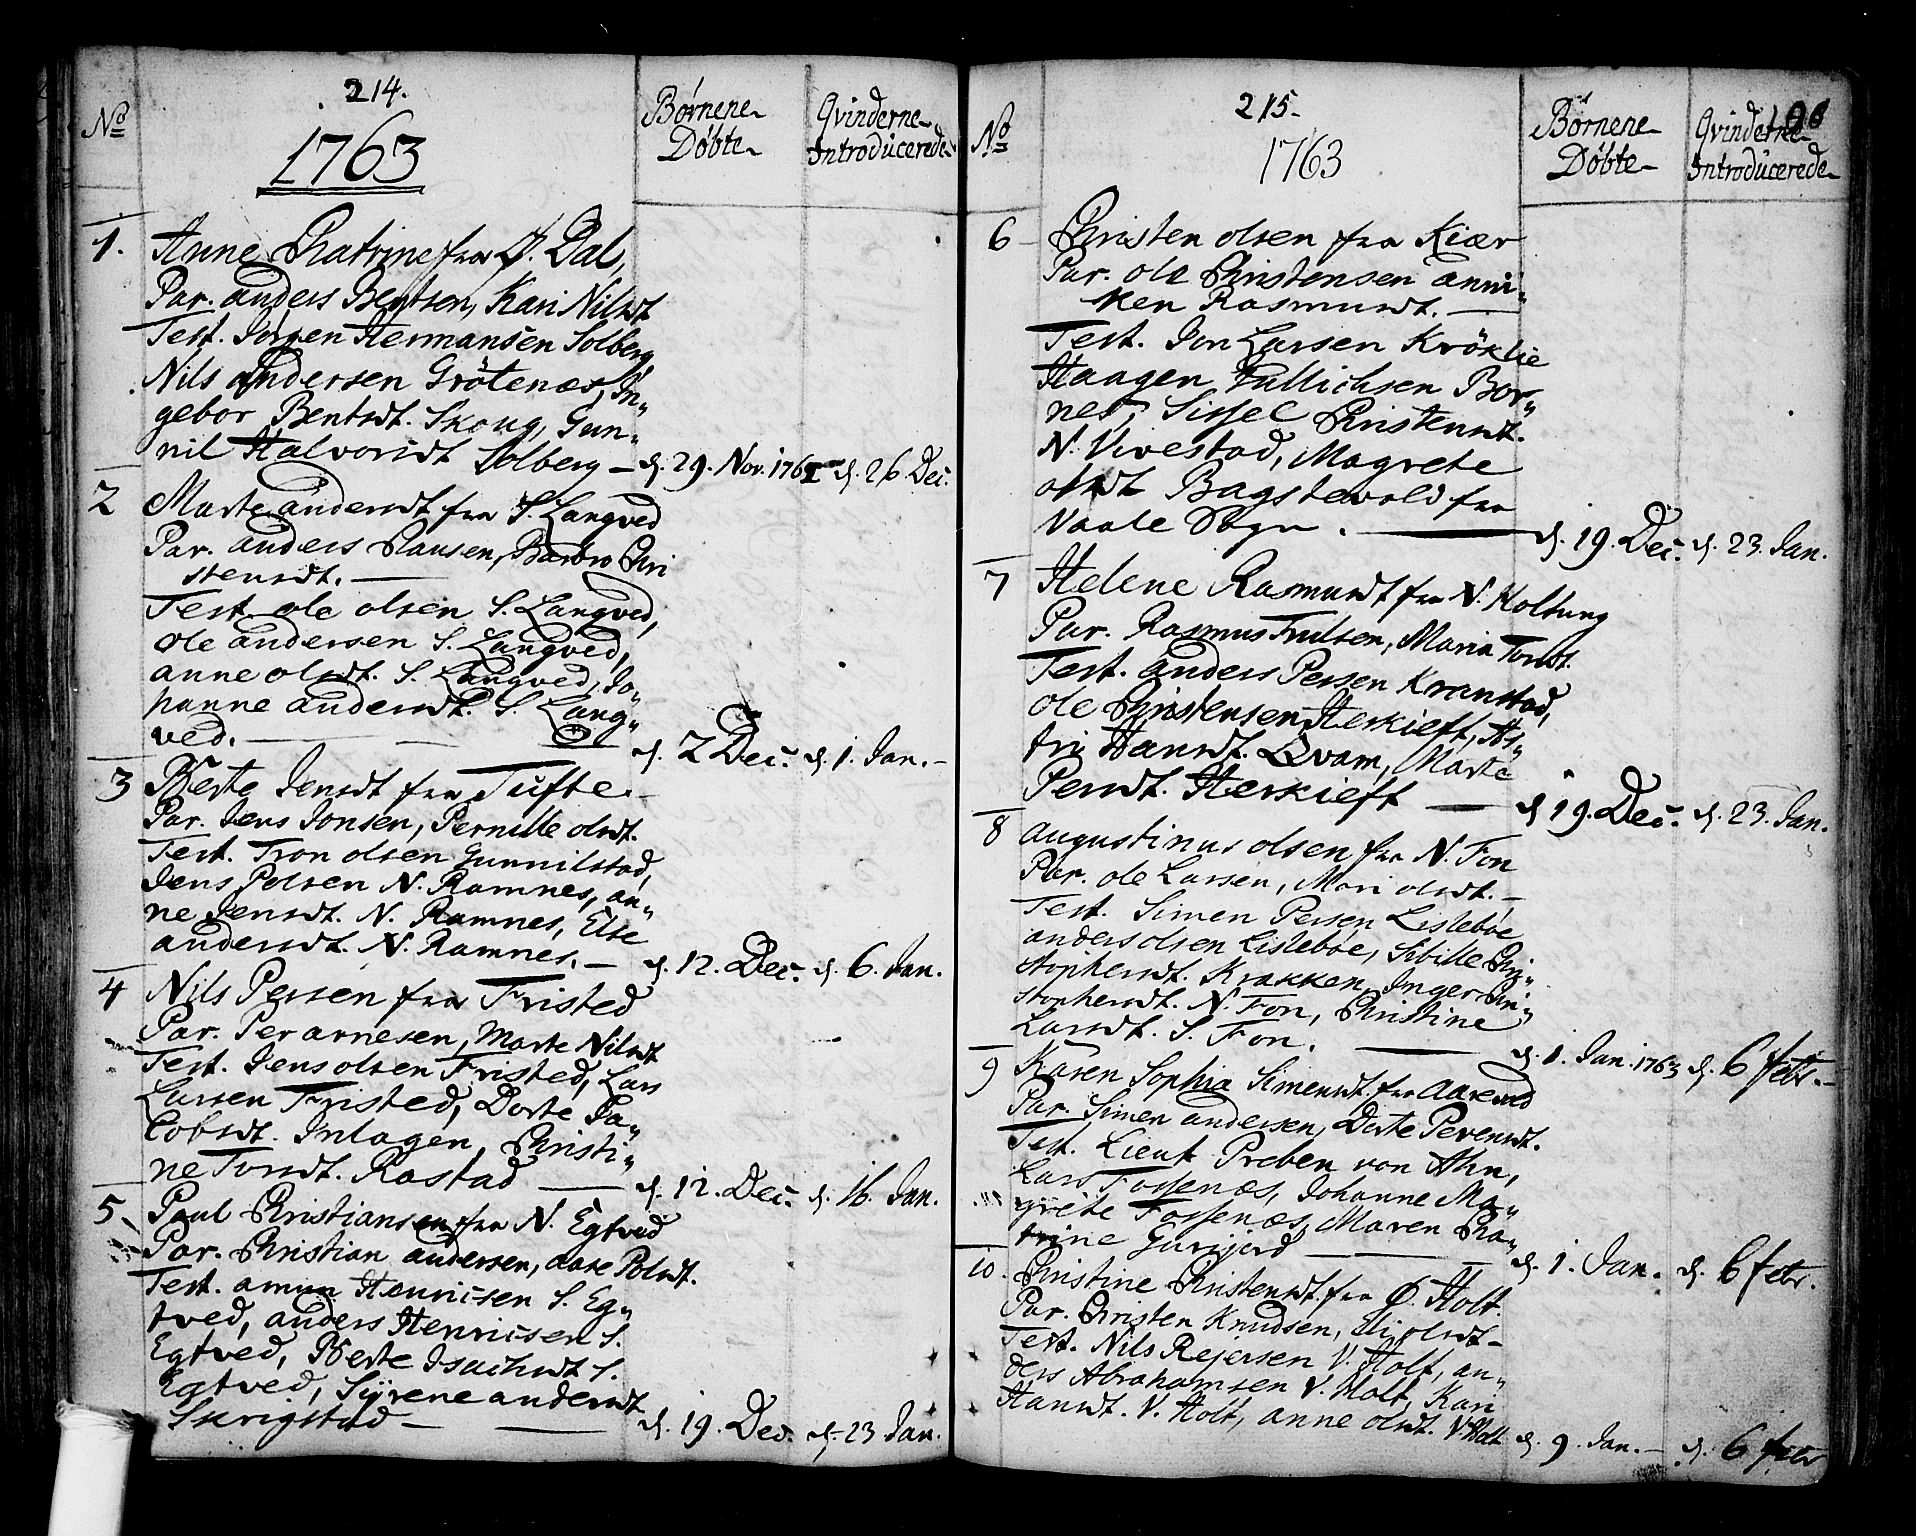 214.
No
1763
Børnene
Døbte
Qvinderne
Introducerede
1. Anne Chatrine fra Ø. Dal,
Par. anders Bentsen, Kari Nilsdt
Test. Jørgen Hermansen Solberg,
Nils Andersen Grötenæs, In„
gebor Bentsdt. Skoug, Gun„
nil Halvorsdt Solberg — d. 29. Nov. 1762 d. 26 Dec.
2 Marte andersdt fra S. Langved
Par. anders Clausen, Barbro Chri
stensdt. —
Test ole olsen S. Langved,
ole andersen S. Langved,
anne olsdt. S. Langved, Jo„
hanne andersdt. S. Lang„
ved. — d. 2 Dec. d. 1. Jan.
3 Berte Jensdt fra Tufte —
Par. Jens Jonsen, Pernille olsdt.
Test. Tron olsen Gunnilstad,
Jens Polsen N. Ramnes, an„
ne Jensdt. N. Ramnes, Else
andersdt. N. Ramnes. — d. 12. Dec. d. 6. Jan.
4 Nils Persen fra Fristed
Par. Per arnesen, Marte Nilsdt
Test. Jens olsen Fristed, Lars
Larsen Fristed, Dorte Ja„
cobsdt. Inlagen, Christi„
ne Tordt. Rastad — d. 12. Dec. d. 16. Jan.
5 Poul Christiansen fra N. Egtved
Par. Christian andersen, aase Polsdt.
Test. Henricsen S. Eg„
tved, anders Henricsen S.
Egtved, Berte Isachsdt S.
Egtved, Syrene andersdt
Skrigstad — d. 19. Dec. d. 23 Jan.
215.
108
No
1763
Børnene
Døbte
Qvinderne
Introducerede
6 Christen olsen fra Kiær
Par. ole Christensen anni„
ken Rasmusdt. —
Test. Jon Larsen Kröklie
Haagen Tullichsen Bor„
nes, Sissel Christensdt.
N. Vivestad, Magrete
olsdt Bagstevold fra
Vaale Sogn. — d. 19. Dec. d. 23. Jan.
7 Helene Rasmusdt fra N. Koltung
Par. Rasmus Trulsen, Maria Tordt.
Test. anders Persen Kranstad,
ole Christensen Herkieft, As„
tri Hansdt. Qvam, Marte
Persdt. Herkieft — d 19. Dec. d. 23. Jan.
8 augustinus olsen fra N. Fon
Par. ole Larsen, Mari olsdt. —
Test. Simen Persen Lislebøe
anders olsen Lislebøe, Sibille Chri„
stophersdt. Krakken, Inger Chri„
stophersdt. N. Fon, Christine
Larsdt. S. Fon. — d. 1. Jan. 1763 d. 6 febr.
9 Karen Sophia Simensdt. fra Aarsrud
Par. Simen andersen, Dorte Perensdt.
Test. Lieut Preben von Ahn,
Lars Fossenæs, Johanne Ma„
grete Fossenæs, Maren Cha„
trine Gurijord — d. 1. Jan. d. 6 febr.
10. Christine Christensdt. fra Ø. Holt
Par. Christen Knudsen, Eli olsdt —
Test. Nils Rejersen V. Holt, an„
ders Abrahamsen V. Holt, Kari
Hansdt. V. Holt, anne olsdt. V. Holt d. 9. Jan. — d. 6 febr